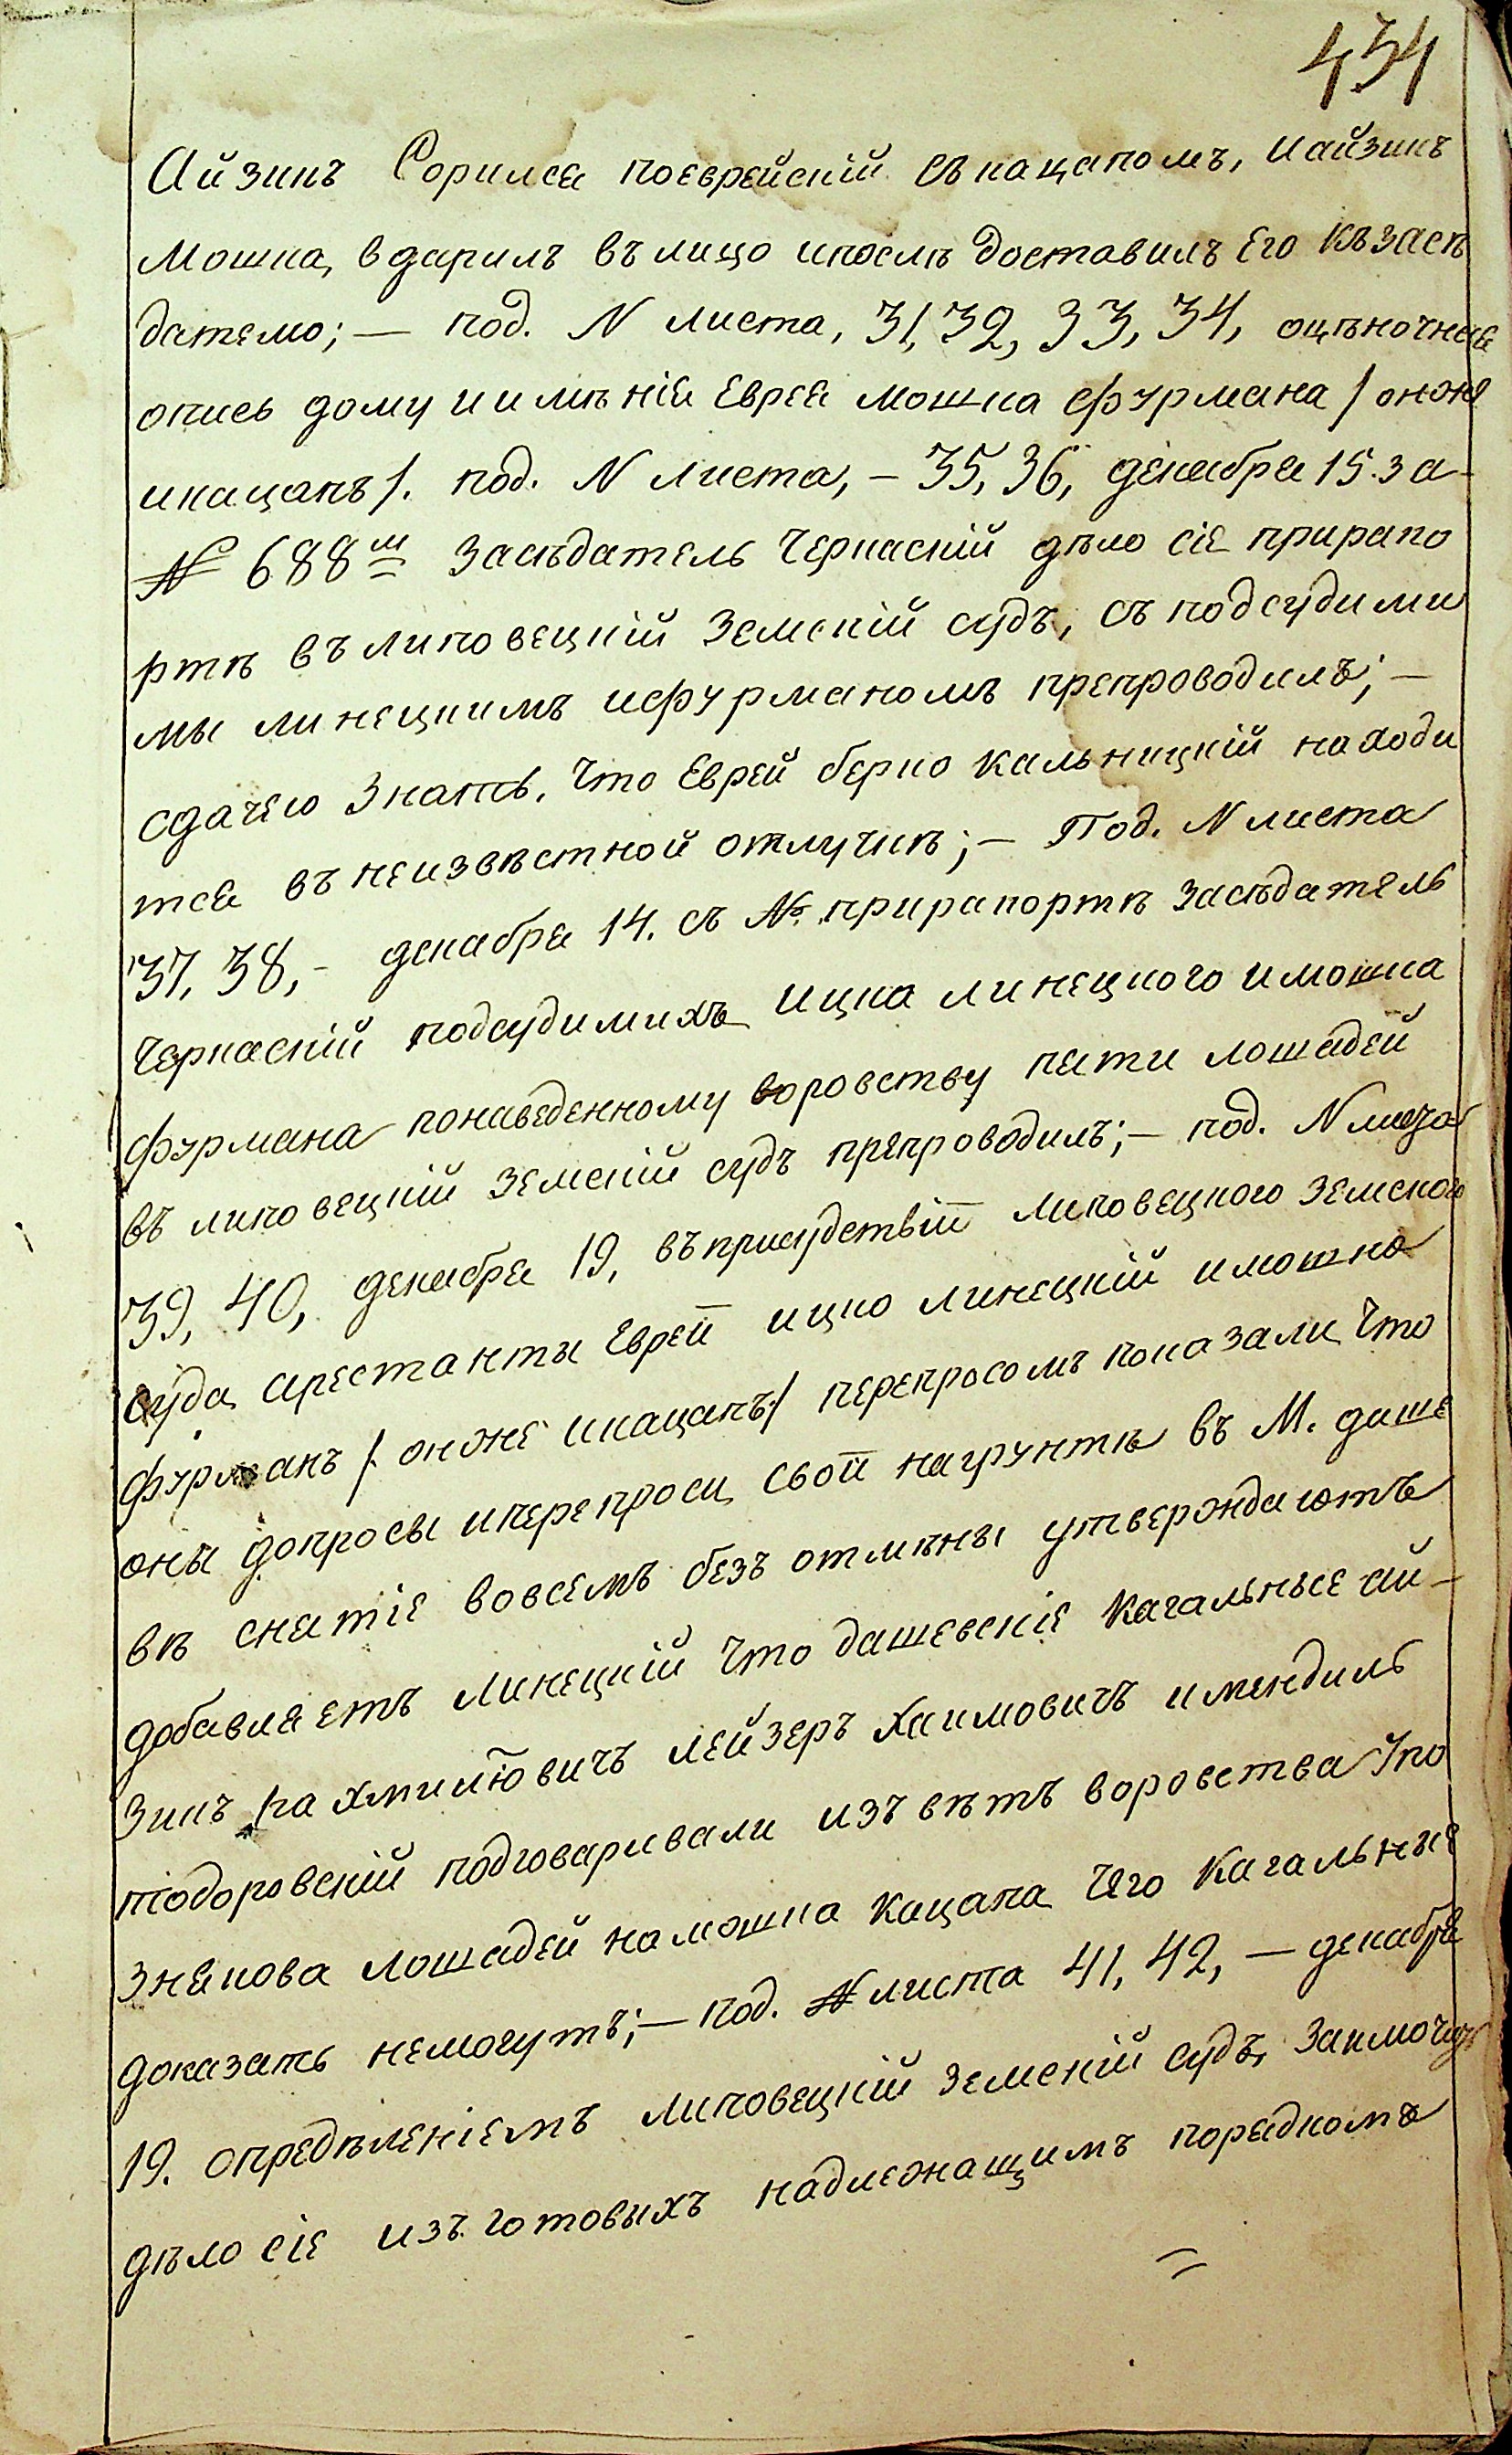 434
Айзикъ Сорился поеврейскій съ кацапомъ, иайзикъ
Мошка вдарилъ въ лицо ипослѣ доставилъ его къ засѣ
дателю; — под. N листа, 31, 32, 33, 34, оцѣночные
опись дому и имѣнія еврея мошка фурмана / онже
икацапъ /. под. N листа, — 35, 36, декабря 15. за
№ 688м засѣдатель Черкаскій дѣло сіе прирапо
ртѣ въ липовецкій Земскій судъ, съ подсудими
мы линецкимъ ифурманомъ препроводилъ; —
сдачею знать, что Еврей берко кальницкій находи
тся въ неизвѣстной отлучкѣ; — Под. N листа
37, 38, — декабря 14. съ № прирапортѣ засѣдатель
Черкаскій подсудимихъ ицка линецкого имошка
Фурмана понаведенному воровству пяти лошадей
въ липовецкій земскій судъ препроводилъ; — под. N листа
39, 40, декабря 19, въприсудствіи липовецкого земского
суда, арестанты Евреи ицко линецкій имошко
Фурманъ /. онже икацапъ / перепросомъ показали, что
оны допросы иперепросы, свои нагрунтѣ въ М. даше
вѣ снятіе вовсемъ безъ отмѣны утверждаютъ
добавляетъ линецкій что дашевскіе кагальные ай-
зикъ пахмилювичъ лейзеръ хаимовичъ имендиль
тіодоровскій подговаривали изъ вѣтъ воровства упо
знякова лошадей намошка кацапа, чего кагальные
доказать немогутъ; — под. N листа 41, 42, — декабря
19. опредѣленіемъ липовецкій земскій судъ, заключилъ
дѣло сіе изъ готовыхъ надлежащимъ порядкомъ
=